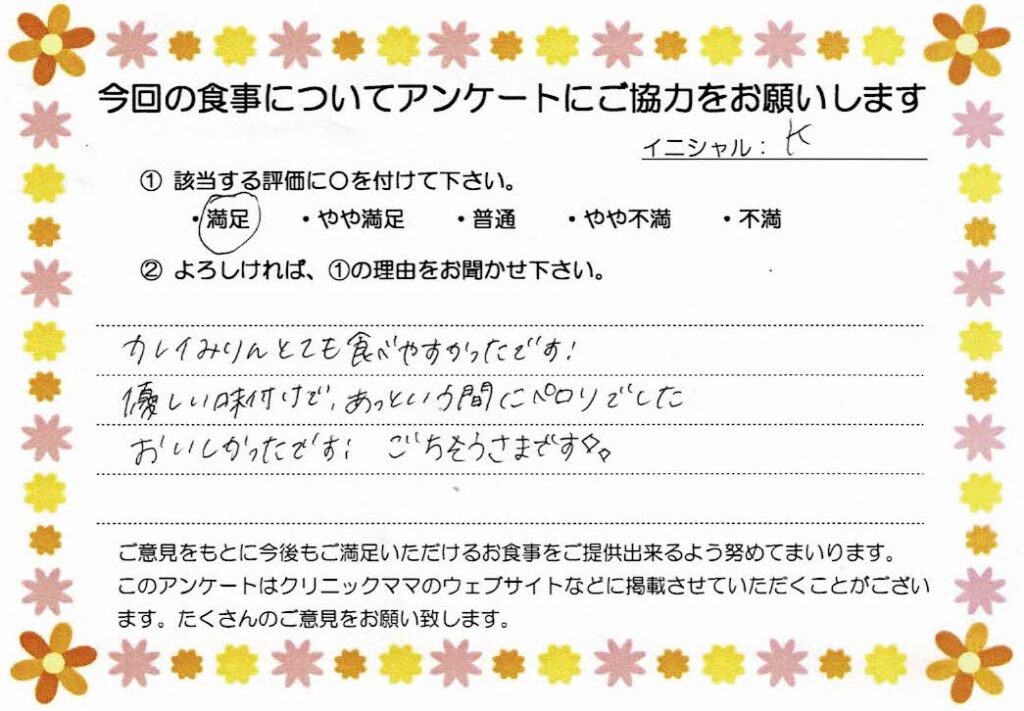 今回の食事についてアンケートにご協力をお願いします
イニシャル： K
① 該当する評価に〇を付けて下さい。
・満足 ・やや満足 ・普通 ・やや不満 ・不満
② よろしければ、①の理由をお聞かせ下さい。
カレイみりんとても食べやすかったです!
優しい味付けで、あっという間にペロリでした
おいしかったです! ごちそうさまです
ご意見をもとに今後もご満足いただけるお食事をご提供出来るよう努めてまいります。
このアンケートはクリニックママのウェブサイトなどに掲載させていただくことがござい
ます。たくさんのご意見をお願い致します。